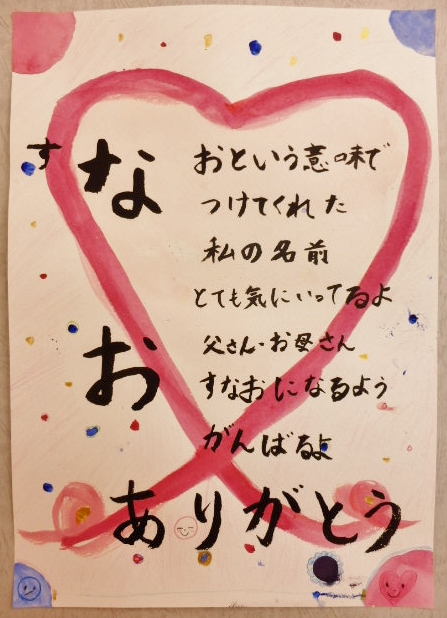 すなおという意味で
つけてくれた
私の名前
とても気にいってるよ
お父さん・お母さん
すなおになるよう
がんばるよ
ありがとう